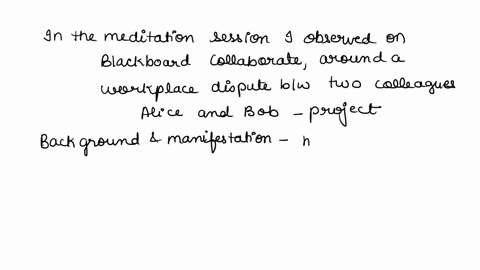 In the meditation session I observed on
Blackboard Collaborate, around a
workplace dispute b/w two colleagues
Alice and Bob - project
Background & manifestation - h